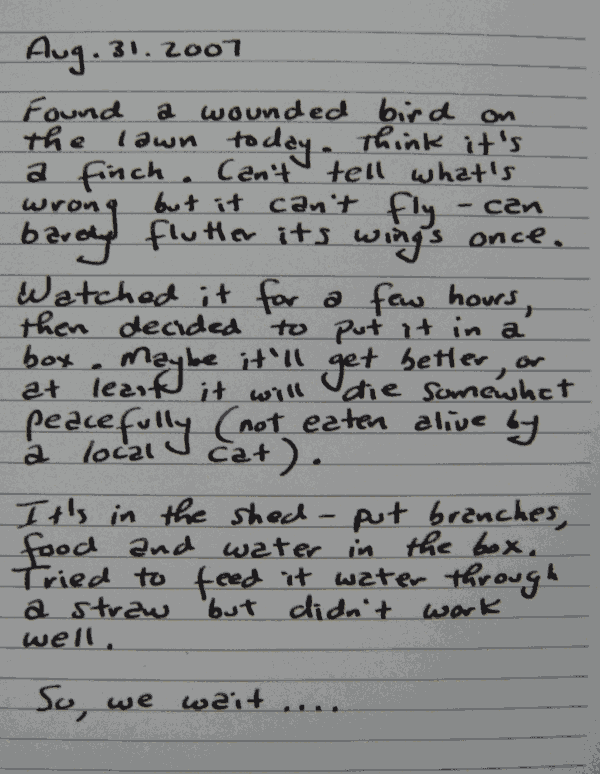 Aug. 31. 2007
Found a wounded bird on
the lawn today. Think it's
a finch. Can't tell what's
wrong but it can't fly - can
barely flutter its wings once.
Watched it for a few hours,
then decided to put it in a
box. Maybe it'll get better, or
at least it will die somewhat
peacefully (not eaten alive by
a local cat).
It's in the shed - put branches,
food and water in the box.
Tried to feed it water through
a straw but didn't work
well.
So, we wait ....